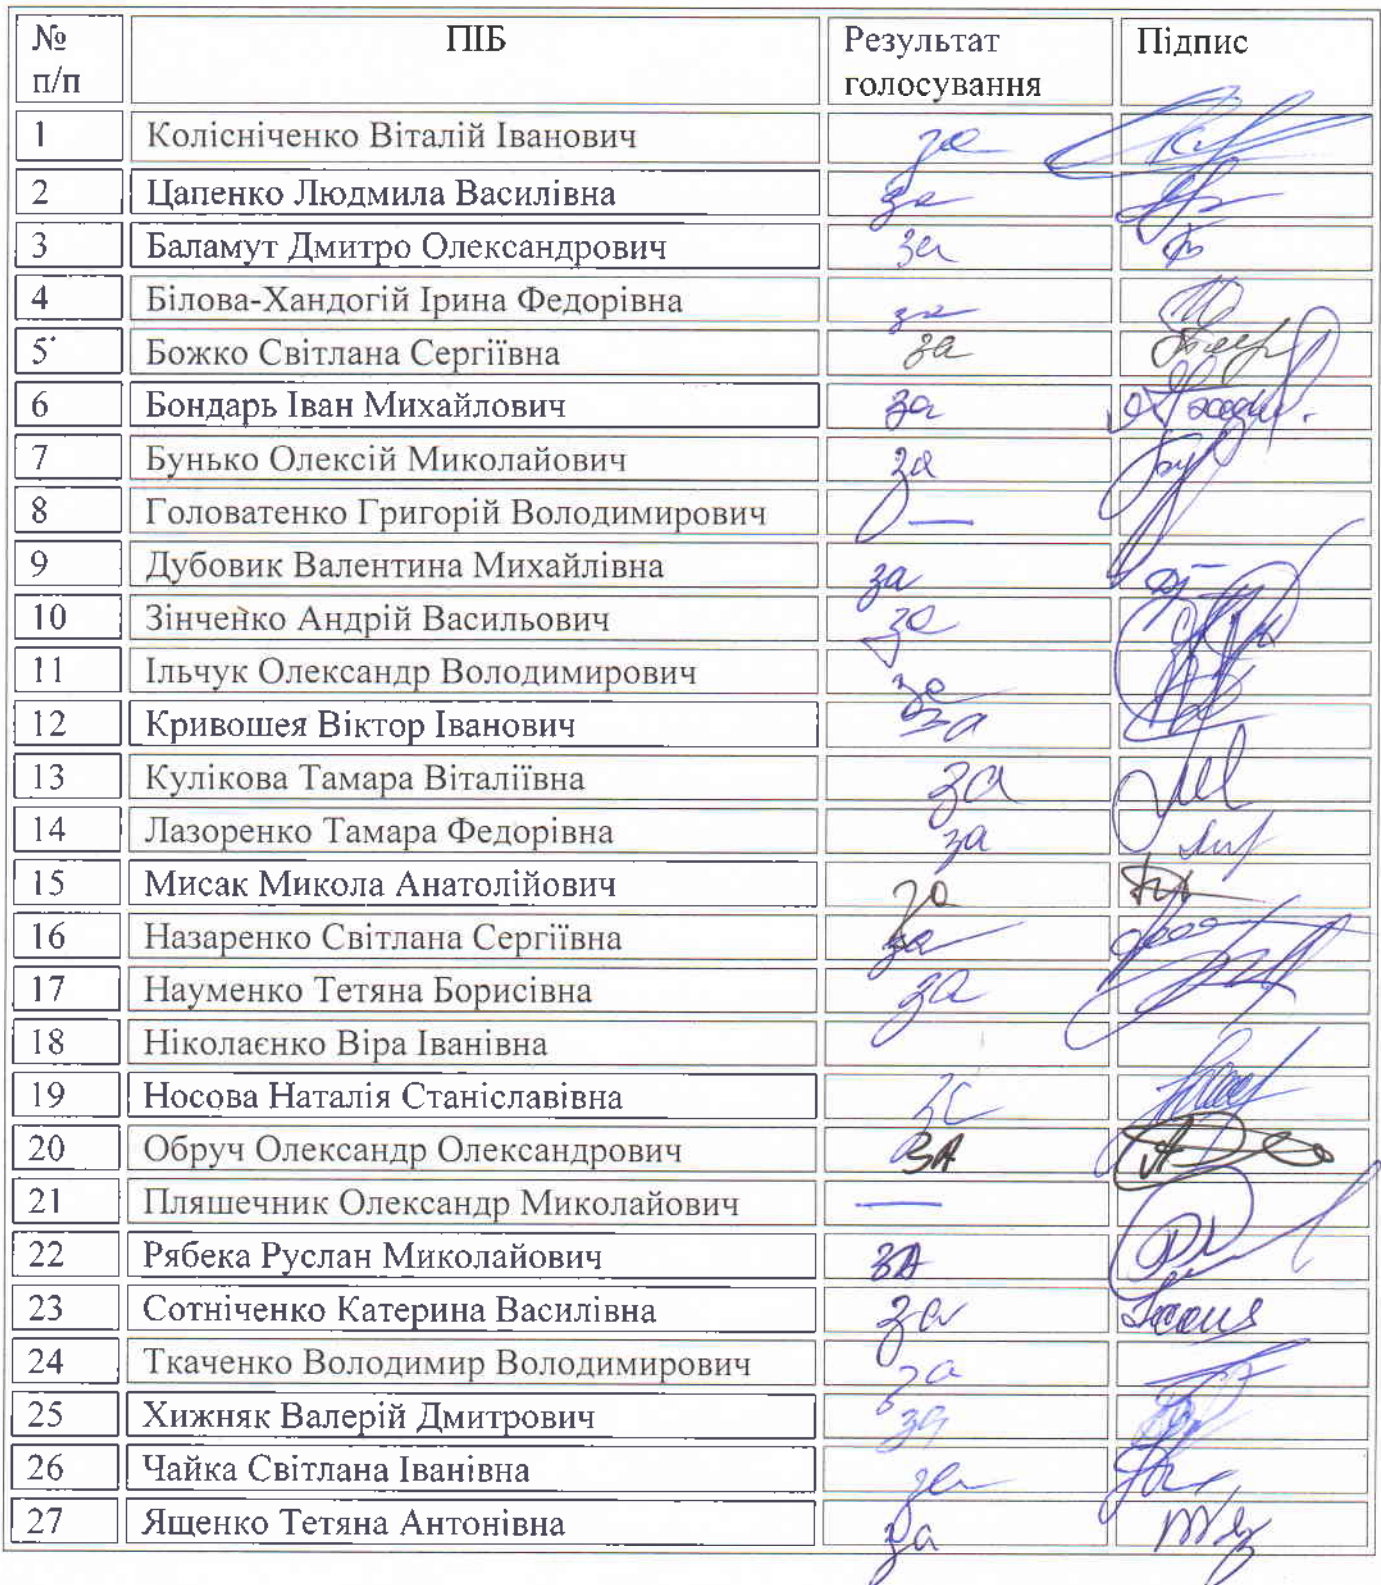 № п/п ПІБ Результат голосування Підпис
1 Колісніченко Віталій Іванович за
2 Цапенко Людмила Василівна за
3 Баламут Дмитро Олександрович за
4 Білова-Хандогій Ірина Федорівна за
5 Божко Світлана Сергіївна за
6 Бондарь Іван Михайлович за
7 Бунько Олексій Миколайович за
8 Головатенко Григорій Володимирович —
9 Дубовик Валентина Михайлівна за
10 Зінченко Андрій Васильович за
11 Ільчук Олександр Володимирович за
12 Кривошея Віктор Іванович за
13 Кулікова Тамара Віталіївна за
14 Лазоренко Тамара Федорівна за
15 Мисак Микола Анатолійович за
16 Назаренко Світлана Сергіївна за
17 Науменко Тетяна Борисівна за
18 Ніколаєнко Віра Іванівна
19 Носова Наталія Станіславівна за
20 Обруч Олександр Олександрович ЗА
21 Пляшечник Олександр Миколайович —
22 Рябека Руслан Миколайович ЗА
23 Сотніченко Катерина Василівна за
24 Ткаченко Володимир Володимирович за
25 Хижняк Валерій Дмитрович за
26 Чайка Світлана Іванівна за
27 Ященко Тетяна Антонівна за